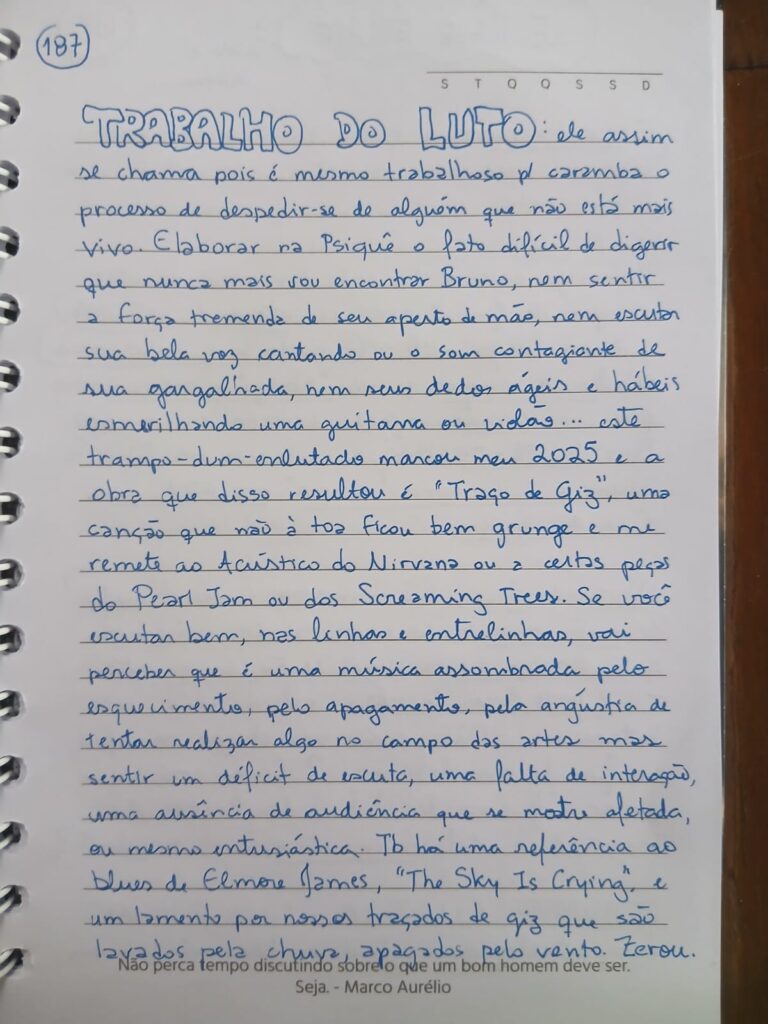 187
S T Q Q S S D
TRABALHO DO LUTO: ele assim
se chama pois é mesmo trabalhoso p/ caramba o
processo de despedir-se de alguém que não está mais
vivo. Elaborar na Psiquê o fato difícil de digerir
que nunca mais vou encontrar Bruno, nem sentir
a força tremenda de seu aperto de mão, nem escutar
sua bela voz cantando ou o som contagiante de
sua gargalhada, nem seus dedos ágeis e hábeis
esmerilhando uma guitarra ou violão... este
trampo-dum-enlutado marcou meu 2025 e a
obra que disso resultou é "Traço de Giz", uma
canção que não à toa ficou bem grunge e me
remete ao Acústico do Nirvana ou a certas peças
do Pearl Jam ou dos Screaming Trees. Se você
escutar bem, nas linhas e entrelinhas, vai
perceber que é uma música assombrada pelo
esquecimento, pelo apagamento, pela angústia de
tentar realizar algo no campo das artes mas
sentir um déficit de escuta, uma falta de interação,
uma ausência de audiência que se mostre afetada,
ou mesmo entusiástica. Tb há uma referência ao
blues de Elmore James, "The Sky Is Crying", e
um lamento por nossos traçados de giz que são
lavados pela chuva, apagados pelo vento. Zerou.
Não perca tempo discutindo sobre o que um bom homem deve ser.
Seja. - Marco Aurélio